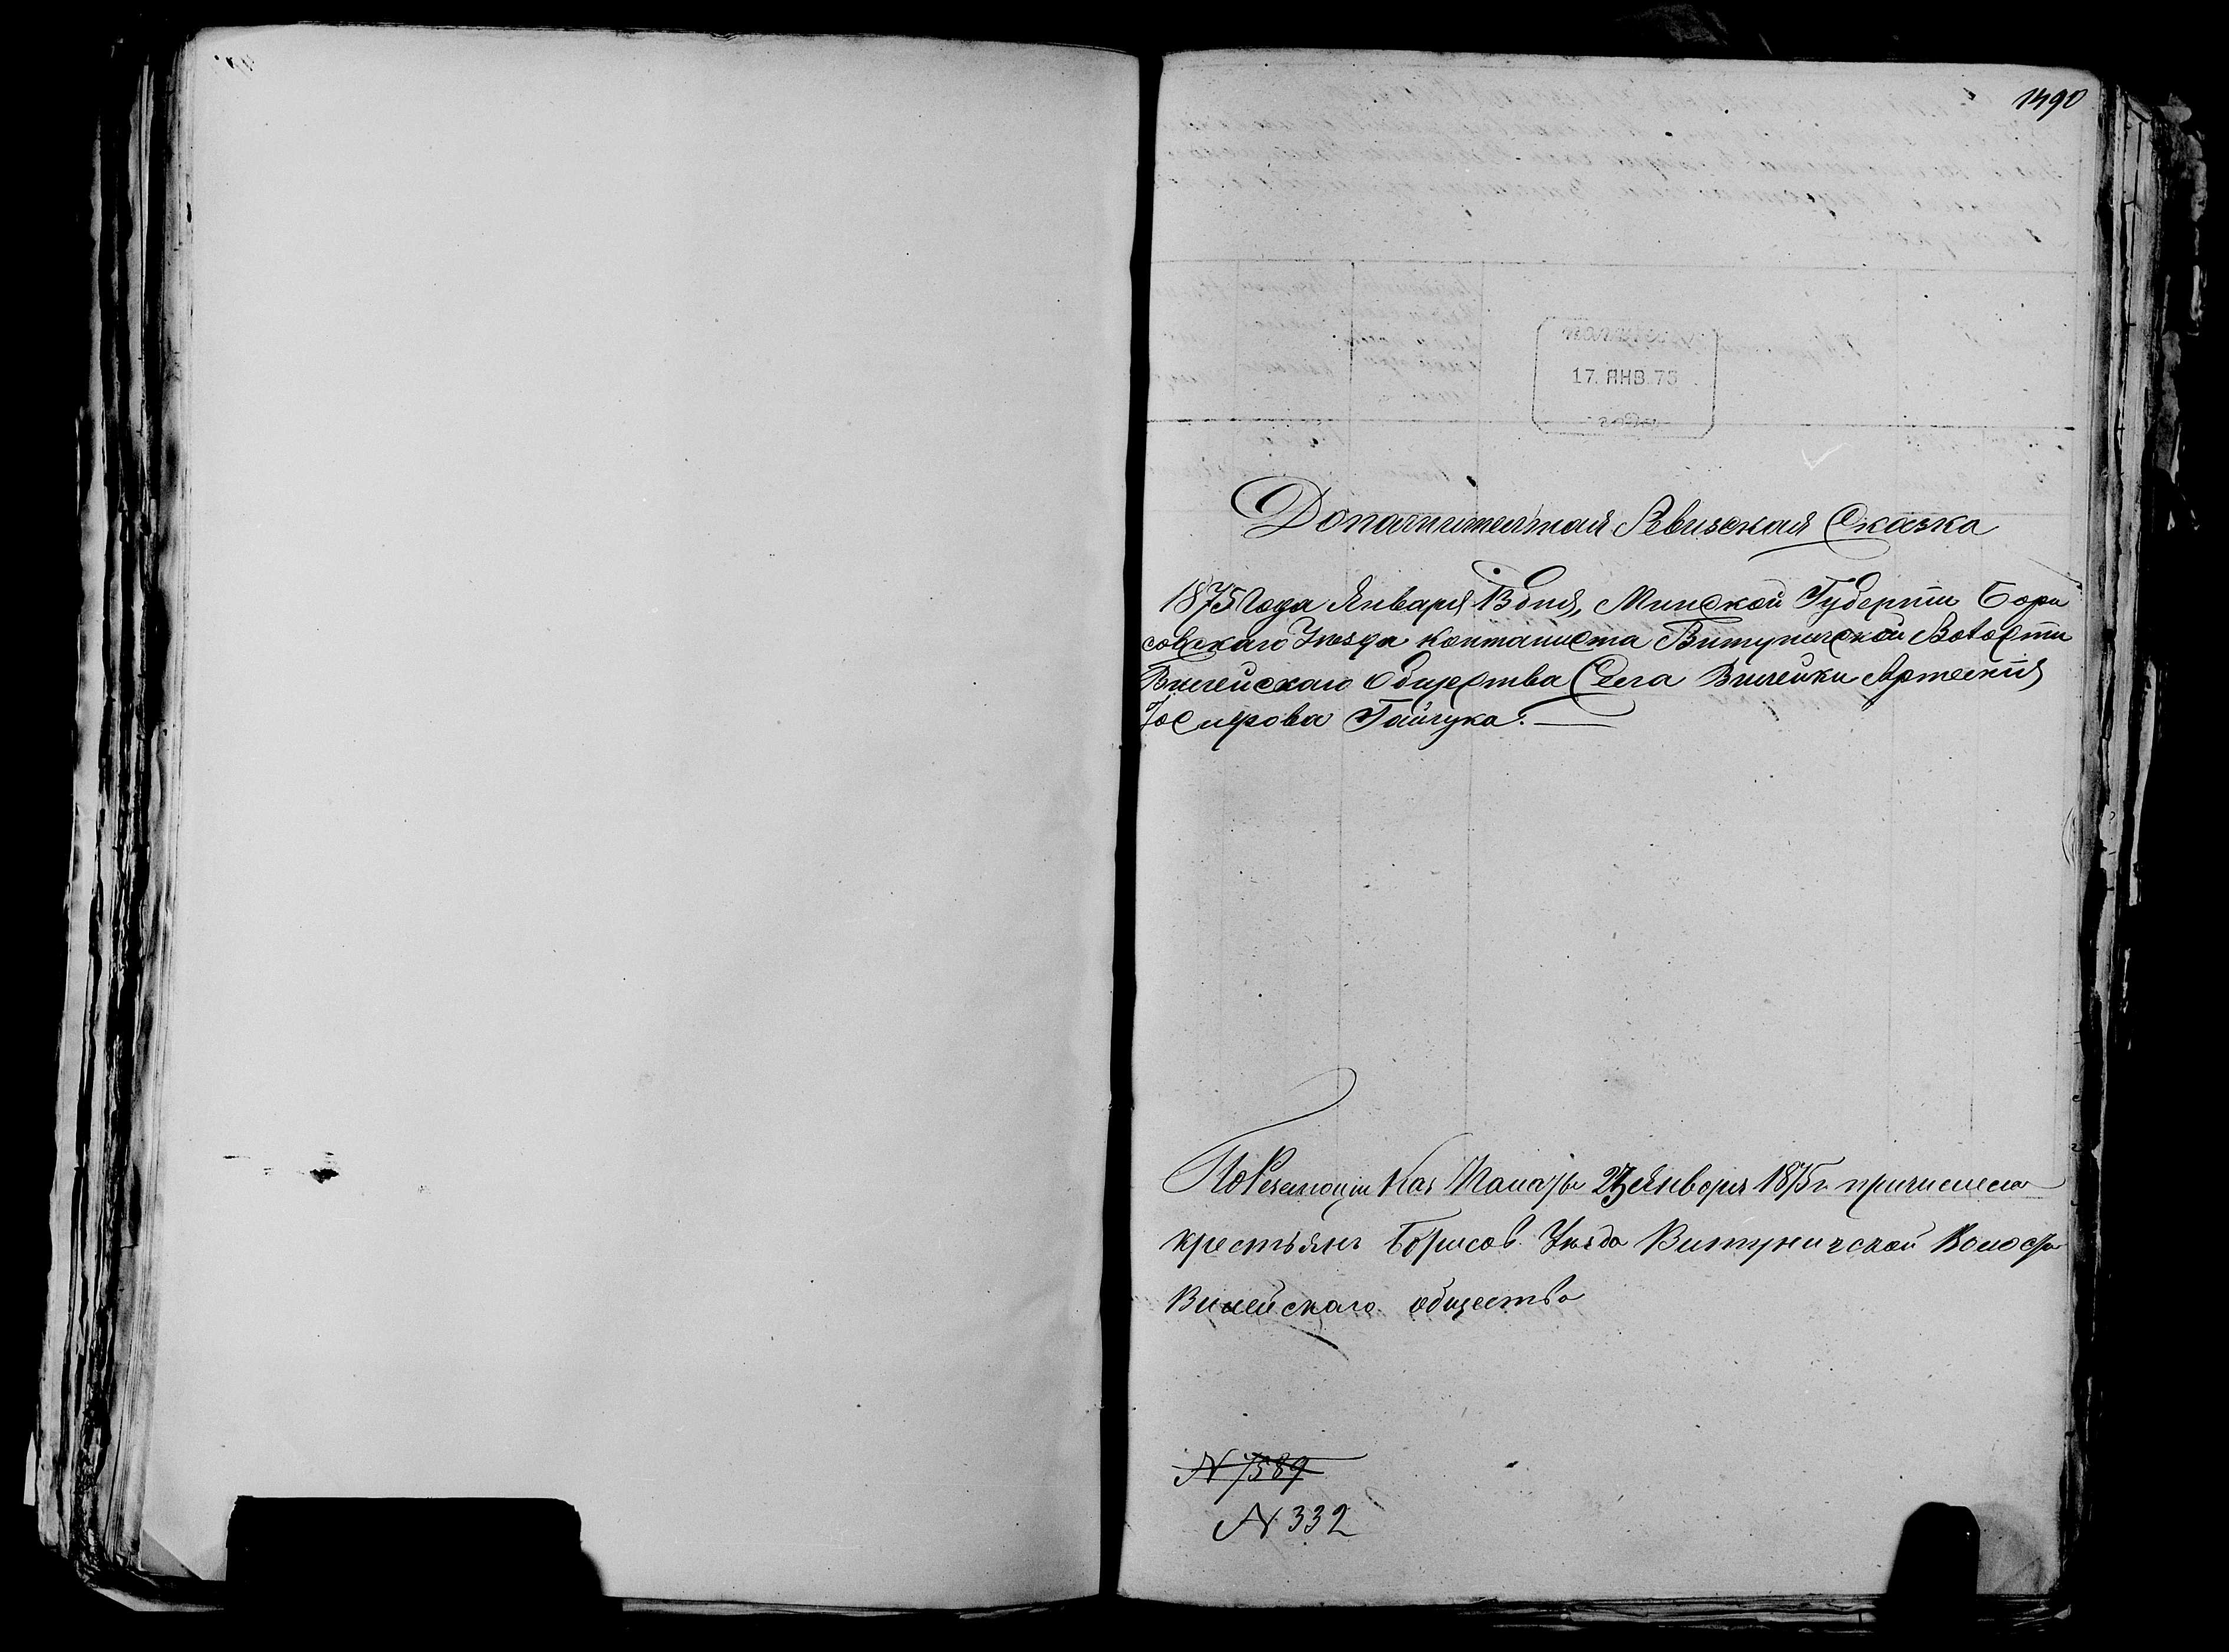 1490
получено
17. ЯНВ. 75
года
Дополнительная Ревизская Сказка
1875 года Января 13 дня, Минской Губернiи Бори
совскаго Уезда контаниста Витуничской Волости
Вилейскаго Общества Села Вилейки Артемiя
Гайчука.
По Резолюцiи Каз Палаты Января 1875 г. причислена
крестьянъ Борисов. Уезда Витуничской Волости
Вилейскаго общества
N 7589
N 332